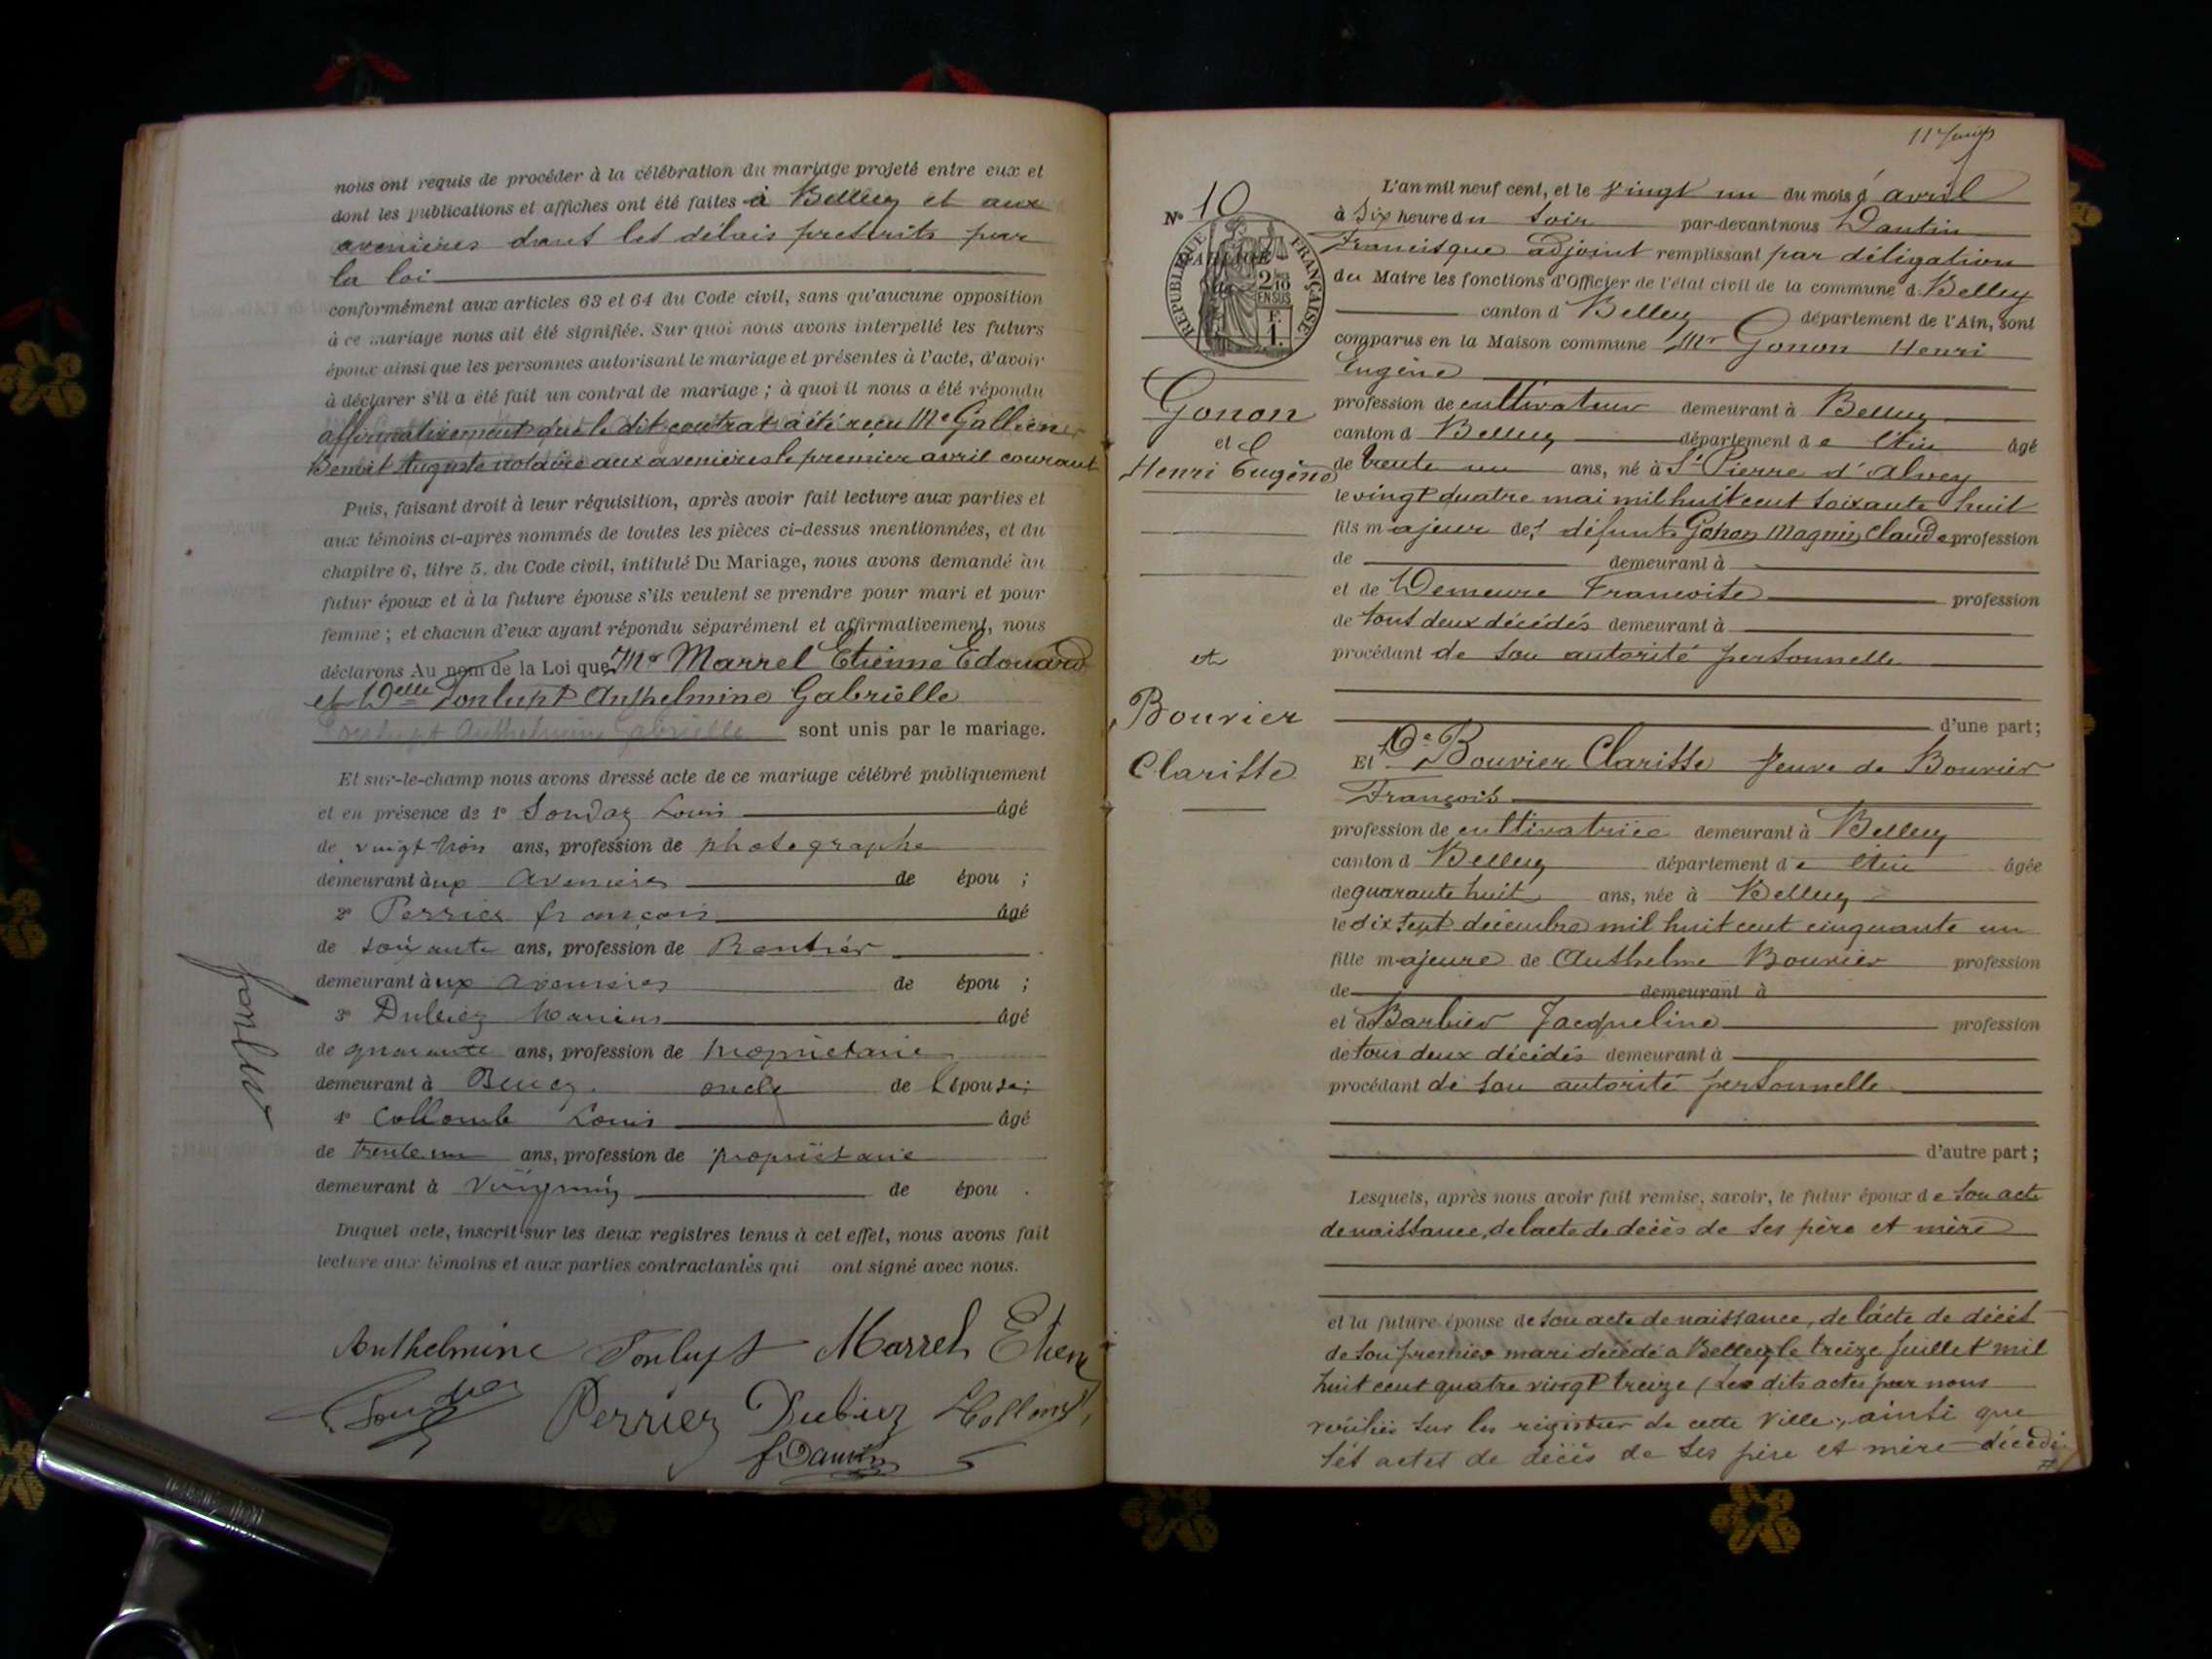 nous ont requis de procéder à la célébration du mariage projeté entre eux et
dont les publications et affiches ont été faites à Belley et aux
avenières dans les délais prescrits par
la loi
conformément aux articles 63 et 64 du Code civil, sans qu'aucune opposition
à ce mariage nous ait été signifiée. Sur quoi nous avons interpellé les futurs
époux ainsi que les personnes autorisant le mariage et présentes à l'acte, d'avoir
à déclarer s'il a été fait un contrat de mariage ; à quoi il nous a été répondu
affirmativement que le dit contrat a été reçu Me Gallien
Benoit Auguste notaire aux avenières le premier avril courant
Puis, faisant droit à leur réquisition, après avoir fait lecture aux parties et
aux témoins ci-après nommés de toutes les pièces ci-dessus mentionnées, et du
chapitre 6, titre 5, du Code civil, intitulé Du Mariage, nous avons demandé au
futur époux et à la future épouse s'ils veulent se prendre pour mari et pour
femme ; et chacun d'eux ayant répondu séparément et affirmativement, nous
déclarons Au nom de la Loi que Mr Marrel Etienne Edouard
et Delle Tonlupt Anthelmine Gabrielle
Tonlupt Anthelmine Gabrielle sont unis par le mariage.
Et sur-le-champ nous avons dressé acte de ce mariage célébré publiquement
et en présence de 1° Soudaz Louis âgé
de vingt trois ans, profession de photographe
demeurant aux Avenières de épou ;
2° Perrier françois âgé
de soixante ans, profession de Rentier
demeurant aux avenières de épou ;
3° Dubiez Marius âgé
de quarante ans, profession de propriétaire
demeurant à Belley oncle de l'épouse ;
4° Collomb Louis âgé
de trente un ans, profession de propriétaire
demeurant à de épou .
Duquel acte, inscrit sur les deux registres tenus à cet effet, nous avons fait
lecture aux témoins et aux parties contractantes qui ont signé avec nous.
Anthelmine Tonlupt Marrel Etienne
Soudaz Perrier Dubiez Collomb
f Dantin
11e
N° 10
MARIAGE
RÉPUBLIQUE FRANÇAISE
2/10
EN SUS
F.
1.
Gonon
et
Henri Eugène
et
Bouvier
Clarisse
L'an mil neuf cent, et le vingt un du mois d'avril
à six heure du soir par-devant nous Dantin
Francisque adjoint remplissant par déligation
du Maire les fonctions d'Officier de l'état civil de la commune d Belley
canton d Belley département de l'Ain, sont
comparus en la Maison commune Mr Gonon Henri
Eugène
profession de cultivateur demeurant à Belley
canton d Belley département de l'Ain âgé
de trente un ans, né à St Pierre d'Alvey
le vingt quatre mai mil huit cent soixante huit
fils majeur des défunts Gonon Magnin Claude profession
de demeurant à
et de Demeure Francoise profession
de tous deux décédés demeurant à
procédant de son autorité personnelle
d'une part ;
Et De Bouvier Clarisse veuve de Bouvier
François
profession de cultivatrice demeurant à Belley
canton d Belley département de l'Ain âgée
de quarante huit ans, née à Belley
le dix sept décembre mil huit cent cinquante un
fille majeure de Anthelme Bouvier profession
de demeurant à
et de Barbier Jacqueline profession
de tous deux décédés demeurant à
procédant de son autorité personnelle
d'autre part ;
Lesquels, après nous avoir fait remise, savoir, le futur époux de son acte
de naissance, de l'acte de décès de ses père et mère
et la future épouse de son acte de naissance, de l'acte de décès
de son premier mari décédé à Belley le treize juillet mil
huit cent quatre vingt treize (Les dits actes par nous
vérifiés sur les régistres de cette Ville, ainsi que
les actes de décès de ses père et mère décédé